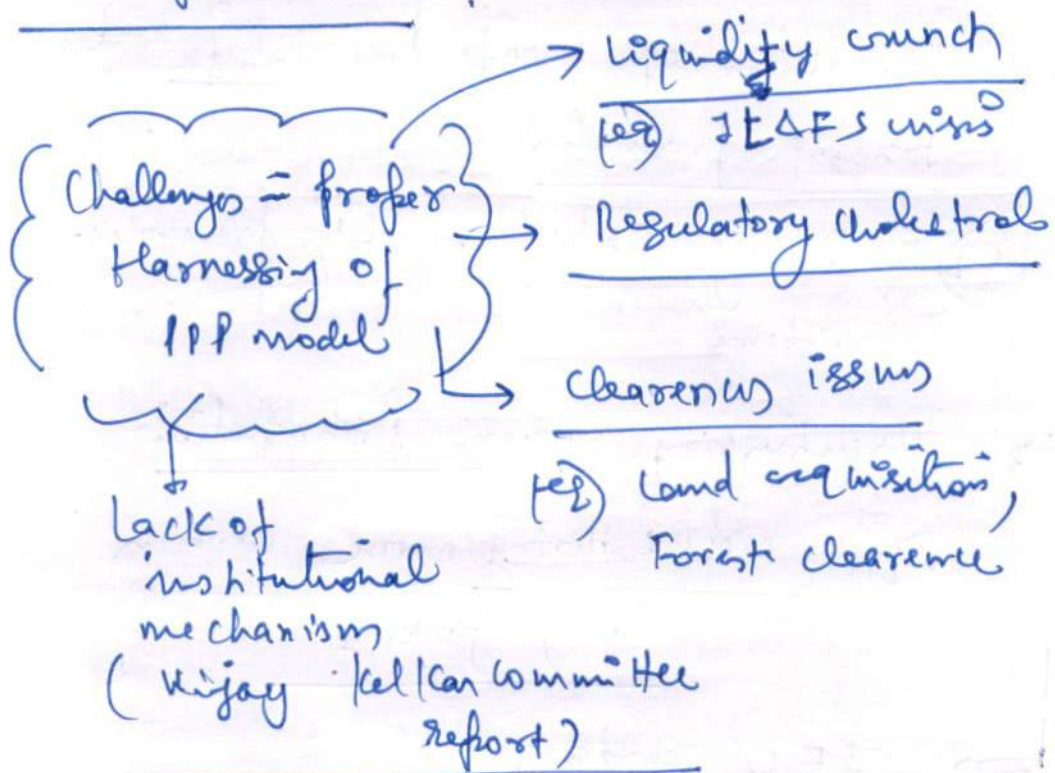 Challenges = proper
Harnessing of
PPP model
Liquidity crunch
(eg) IL&FS crisis
Regulatory cholestrol
Clearences issues
(eg) Land acquisition,
Forest clearence
Lack of
institutional
mechanism
(Vijay Kelkar Committee
report)